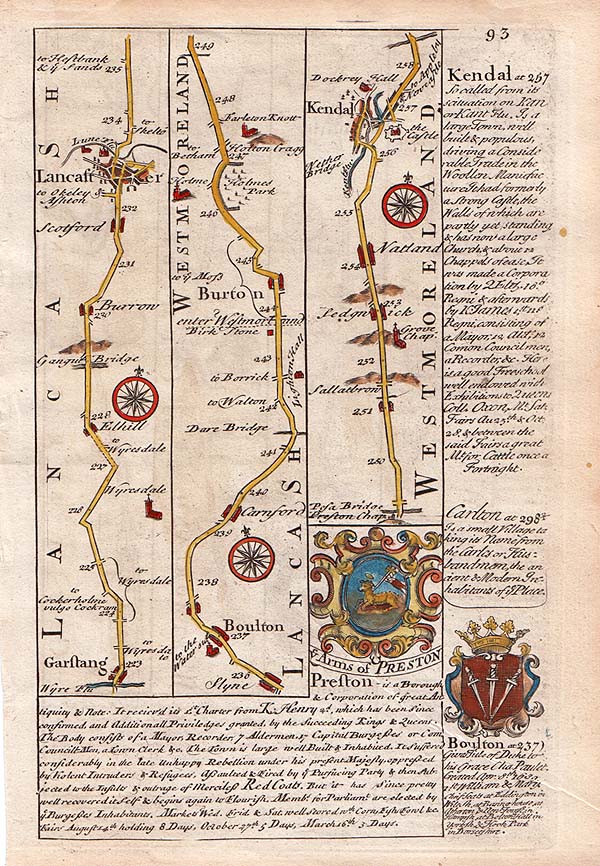 93
to Hestbank
& ye Sands
235
234
to Skelto
Lune
Lancaster
to Okeley
Ashton
232
Scotford
231
Burrow
230
Bridge
228
Elhill
to
Wyresdale
227
Wyresdale
218
225
to
Wyresdale
to
Cockerholme
vulgo Cockram
224
to
Garstang
223
Wyre Flu
LANCASH
249
248
WESTMORELAND
Farleton Knott
to
Betham
247
Hotton Cragg
Holme
Holmes
Park
246
to ye Moss
245
Burton
enter Westmorland
Birk Stone
243
to Borrick
to Walton
242
Dare Bridge
241
240
Carnford
239
238
Boulton
237
to the
Water side
236
Slyne
LANCASH
258
to Appleby
Dockrey Hall
Kendal
257
the
Castle
256
Nether
Bridge
255
Natland
254
253
Sedgwick
Grove
Chap.
252
Sallatbron
251
250
Pesa Bridge
Preston Chap.
WESTMORELAND
Kendal at 257
So called from its
scituation on Kan
or Kant Flu. Is a
large Town, well
built & populous,
driving a Conside
rable Trade in the
Woollen Manufac
ture. It had formerly
a Strong Castle, the
Walls of which are
partly yet standing
& has now a large
Church, & about 12
Chappels of ease. It
was made a Corpora
tion by Q. Eliz. 18o
Regni & afterwards
by K. James 1st
Regni, consisting of
a Mayor, 12 Ald. 12
Comon Councilmen,
a Recorder, &c. Here
is a good Freeschool
well endowed with
Exhibitions to Queens
Coll. Oxon. Mt. Sat.
Fairs Au. 25th & Oct.
28, & between the
said Fairs a great
Mt. for Cattle once a
Fortnight.
Carlton at 298¾
Is a small Village ta
king its Name from
the Carles or Hus-
bandmen, the an
cient & Modern In-
habitants of ye Place.
ye Arms of PRESTON
Preston - is a Borough
& Corporation of great An
tiquity & Note: It receiv'd its 1st Charter from K. Henry 2d, which has been Since
confirmed, and Additionall Priviledges granted, by the Succeeding Kings & Queens.
The Body consists of a Mayor, Recorder, 7 Aldermen, 17 Capital Burgesses or Com.
Council-Men, a Town Clerk &c. The Town is large well Built & Inhabited. It Suffered
considerably in the late Unhappy Rebellion under his present Majesty, oppressed
by Violent Intruders & Refugees, Assaulted & Fired by ye Pursueing Party & then Sub-
jected to the Insults & outrage of Merciless Red Coats. But it has Since pretty
well recovered it self & begins again to Flourish. Memb. for Parliamt. are elected by
ye Burgesses Inhabitants. Markets Wed. Frid. & Sat. well stored wth. Corn, Fish, Fowl &c
Fairs August 14th holding 8 Days, October 27th 5 Days, March 16th 3 Days.
Boulton at 237)
Gives Title of Duke to
his Grace Cha. Paulet